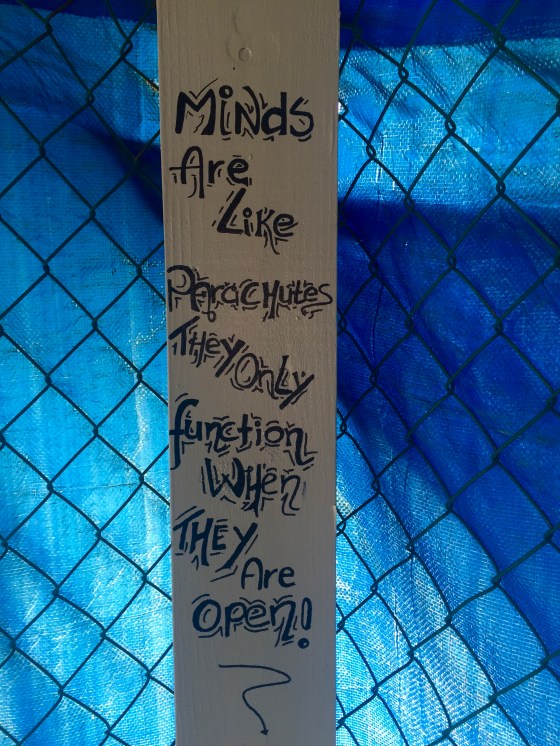 Minds
Are
Like
Parachutes
They Only
function
When
THEY
Are
Open!